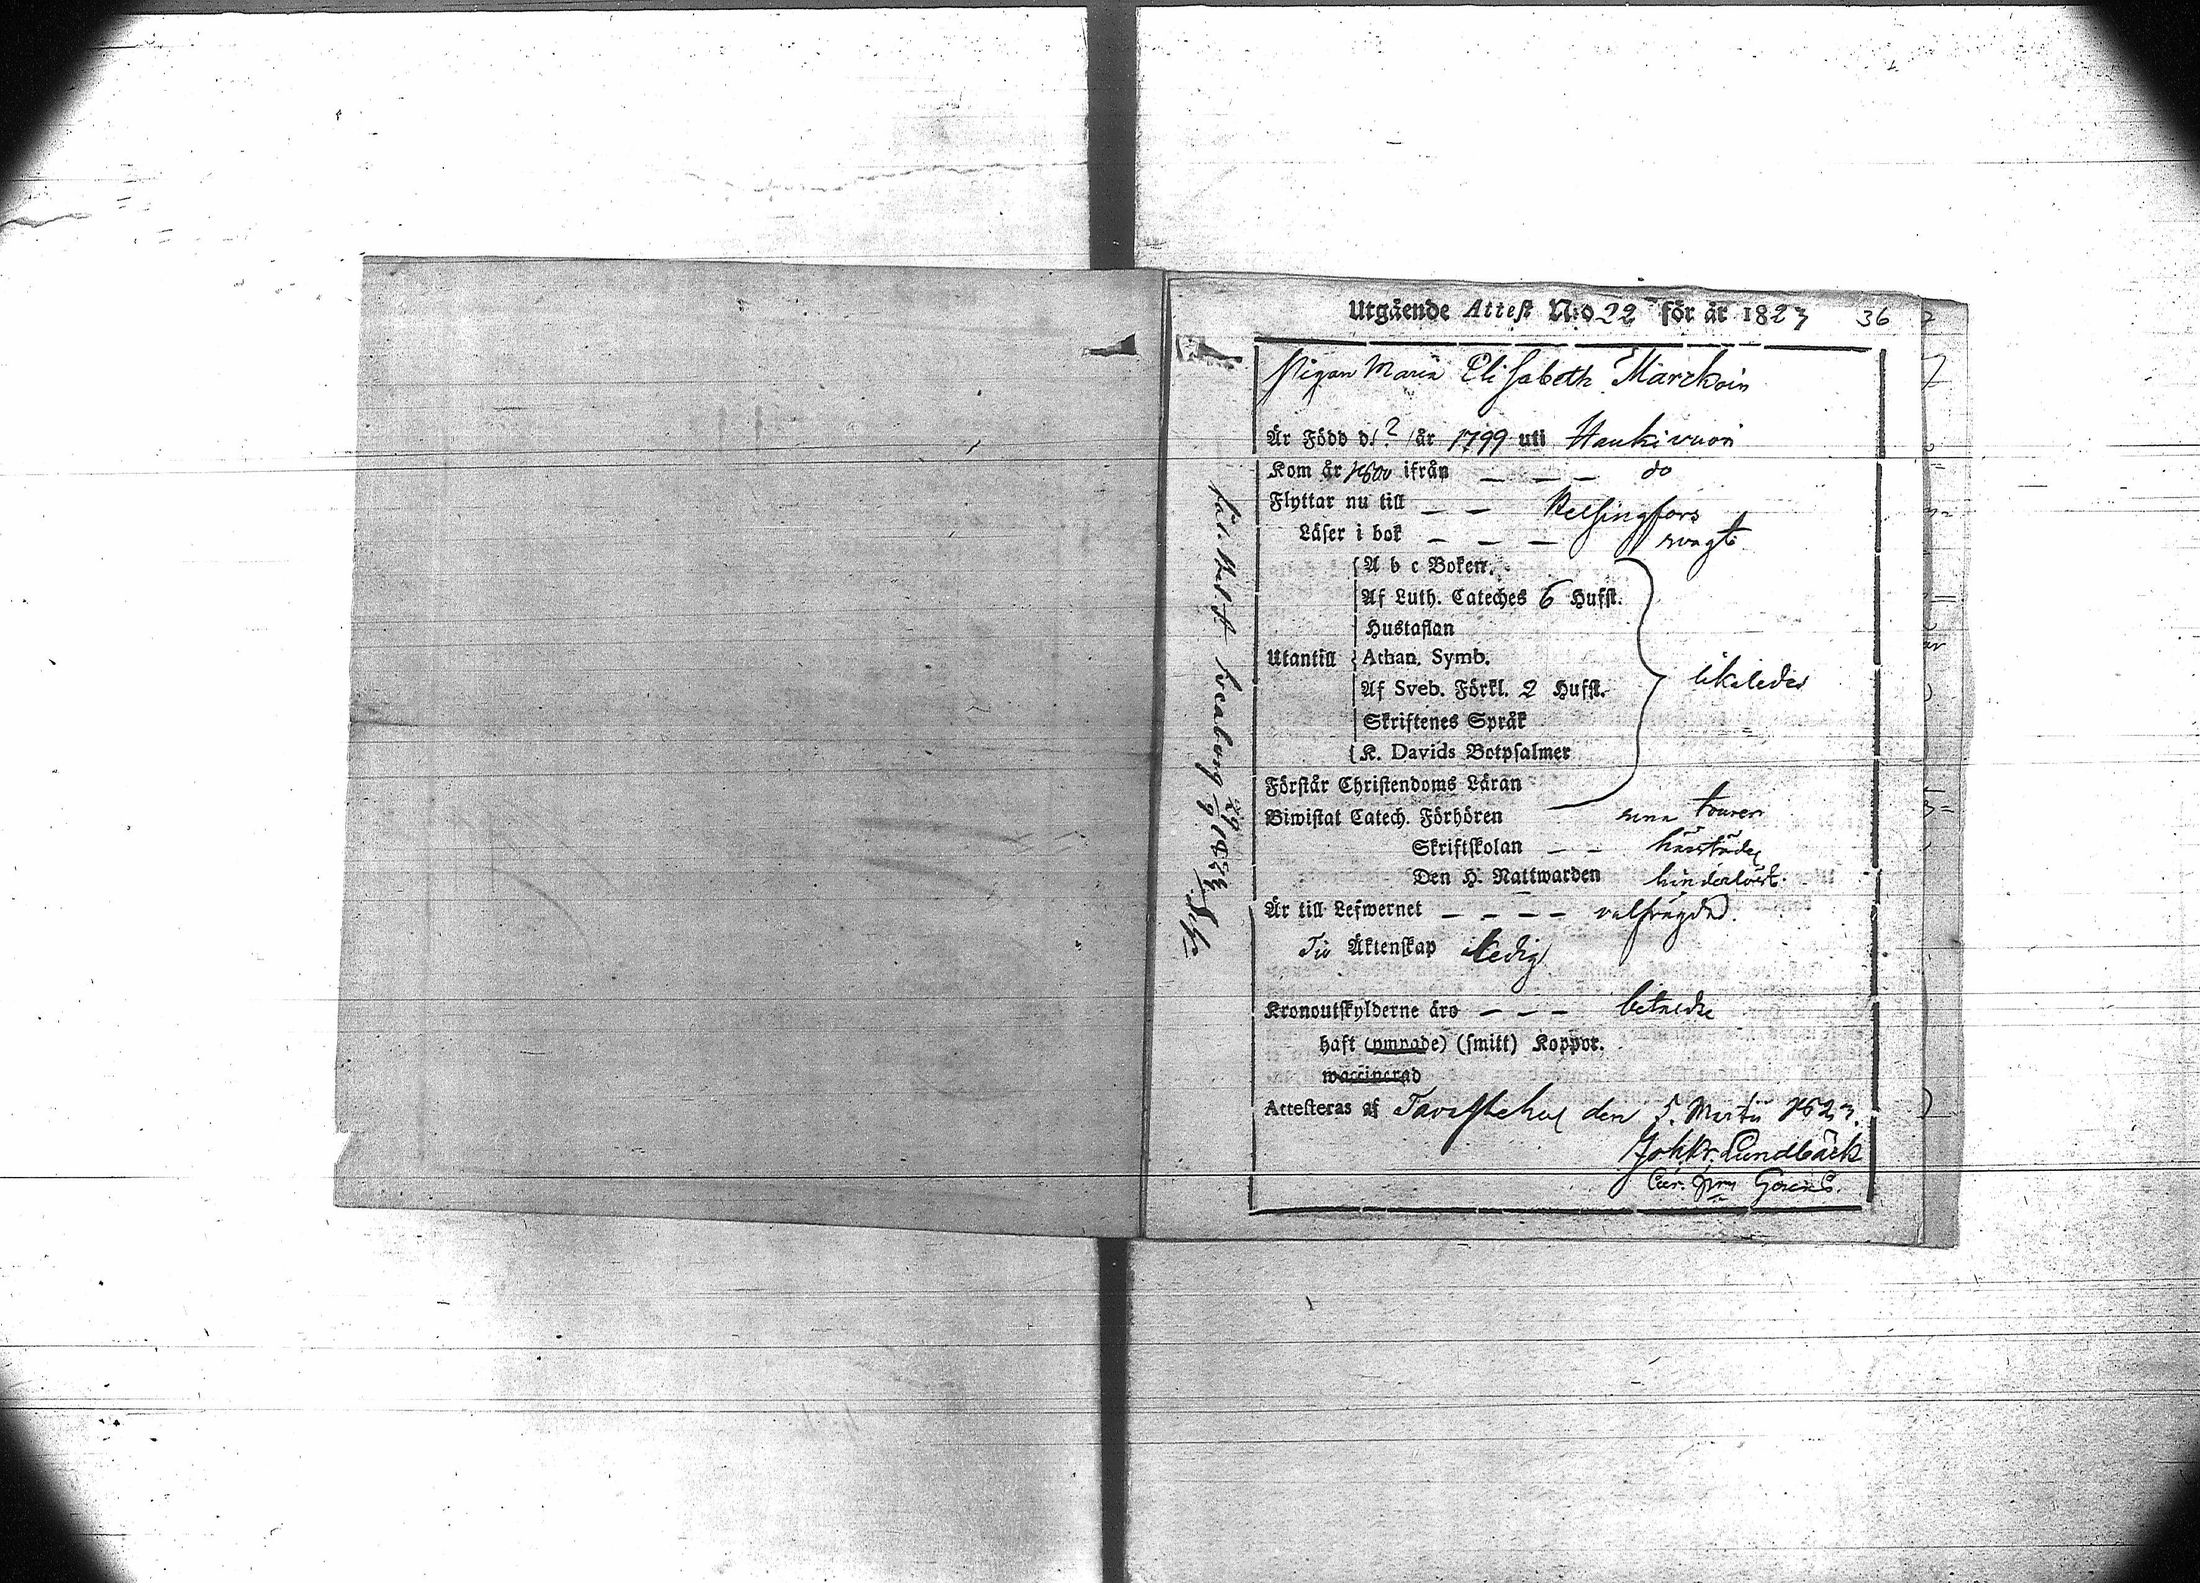 Utgående Attest N:o 22 för år 1823 36
Pigan Maria Elisabeth Marckoin
Är Född d. ? år 1799 uti Haukivuori
Kom år 1800 ifrån — — — do
Flyttar nu till — — Helsingfors
Läser i bok — — — svagt
A b c Boken.
Af Luth. Cateches 6 Hufst.
Hustaflan
Utantill Athan. Symb. likaledes
Af Sveb. Förkl. 2 Hufst.
Skriftenes Språk
K. Davids Botpsalmer
Förstår Christendoms Läran
Biwistat Catech. Förhören sina tourer
Skriftskolan — — härstädes
Den H. Nattwarden hinderlöst.
Är till Lefwernet — — — — välfrägdad.
Till Äktenskap ledig
Kronoutskylderne äro — — — betalda
haft (ympade) (smitt) Koppor.
waccinerad
Attesteras af Tavastehus den 5. Martii 1823.
Joh. Fr. Lundbäck
Sveaborg 1823